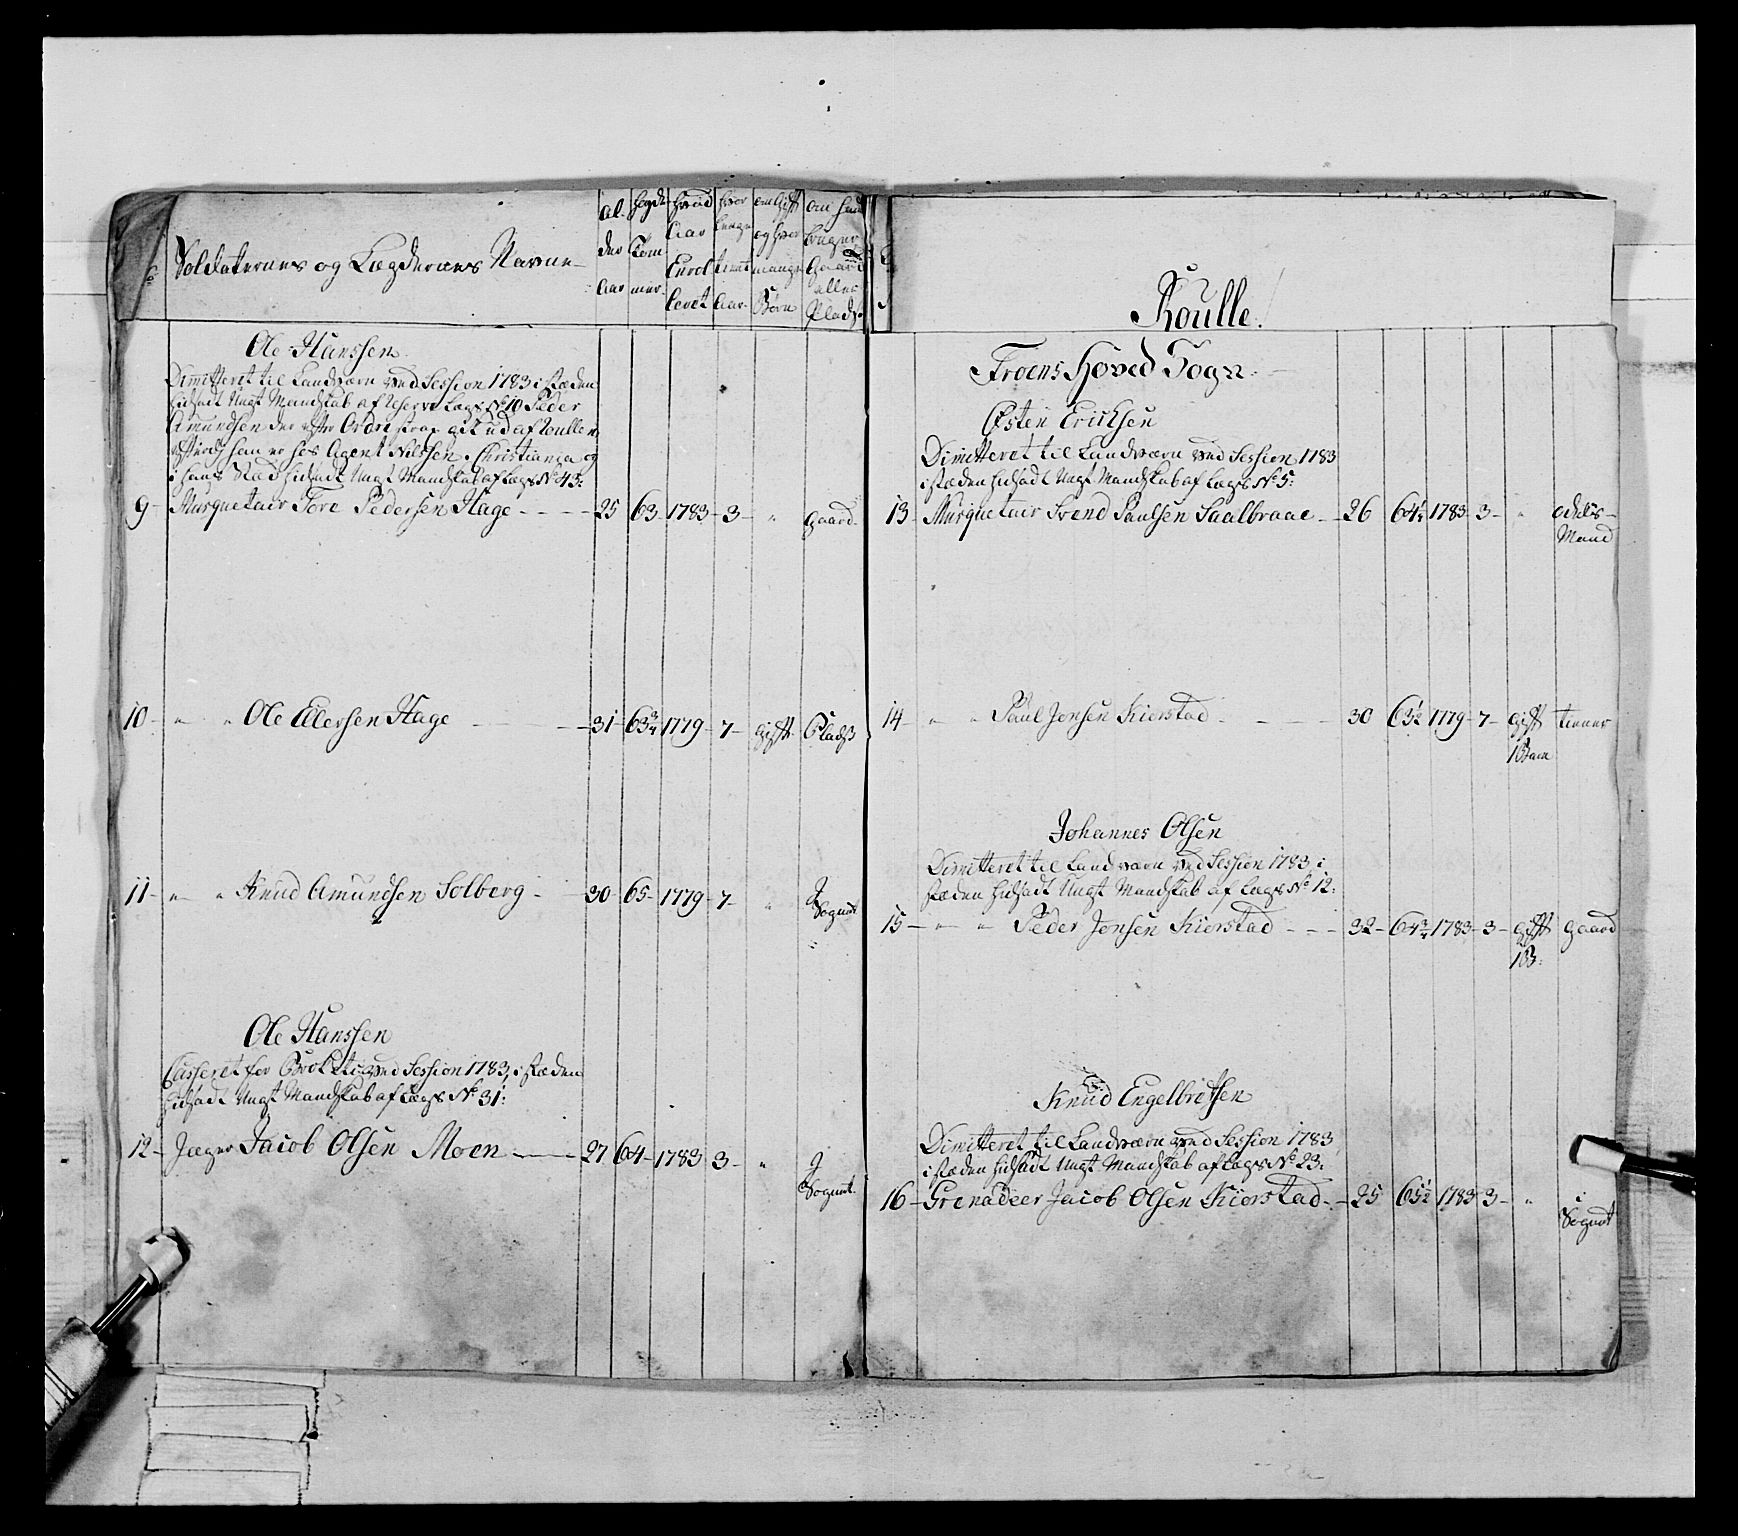 No
Soldaternes og Lægdernes Navne
Al-
der
Aar
Høyde
Tom-
mer
Hvad
Aar
Enrol-
leret
Hvor
længe
tient
Aar
om Gift
og hvor
mange
Børn
om hand
bruger
Gaard
eller
Plads
Ole Hanssen
Dimitteret til Landværn ved Session 1783 i stæden
Indsadt Ungt Mandskab af Reserve Lægs No 10 Peder
Amundsen der efter Ordre strax gik ud af Roullen
efterdj han er hos Agent Nilssen i Christiania og
i hans Stæd Indsadt Ungt Mandskab af Lægs No 43:
9 - Musquetair Tore Pedersen Hage - - - - 25 63 - 1783 - 3 - " Gaard
10 - " " Ole Ellersen Hage - - - 31 - 63¾ 1779 - 7 - gift Plads
11 - " " Knud Amundsen Solberg - 30 - 65 - 1779 - 7 - " J
Sognet
Ole Hanssen
Casseret for Brok ved Session 1783, i stæden
Indsadt Ungt Mandskab af Lægs No 31:
12 - Jæger Jacob Olsen Moen - - - 27 64 - 1783 - 3 - " J
Sognet
Roulle
Froens Hoved Sogn
Østen Ericksen
Dimitteret til Landværn ved Session 1783
i stæden Indsadt Ungt Mandskab af Lægs No 5:
13 - Musquetair Svend Paulsen Saalbraae - - 26 64¼ 1783 - 3 - " odels-
Mand
14 - " " Paul Jonsen Kiorstad - - - 30 63½ 1779 - 7 - gift tiener
1 Barn
Johannes Olsen
Dimitteret til Landværn ved Session 1783, i
stæden Indsadt Ungt Mandskab af Lægs No 12:
15 - " " Peder Jonsen Kiorstad - - - 32 - 64¾ 1783 - 3 - gift Gaard
1 B:
Knud Engelbretsen
Dimitteret til Landværn ved Session 1783
i stæden Indsadt Ungt Mandskab af Lægs No 23:
16 - Grenadeer Jacob Olsen Kiorstad - - 25 65½ 1783 - 3 - "
Sognet